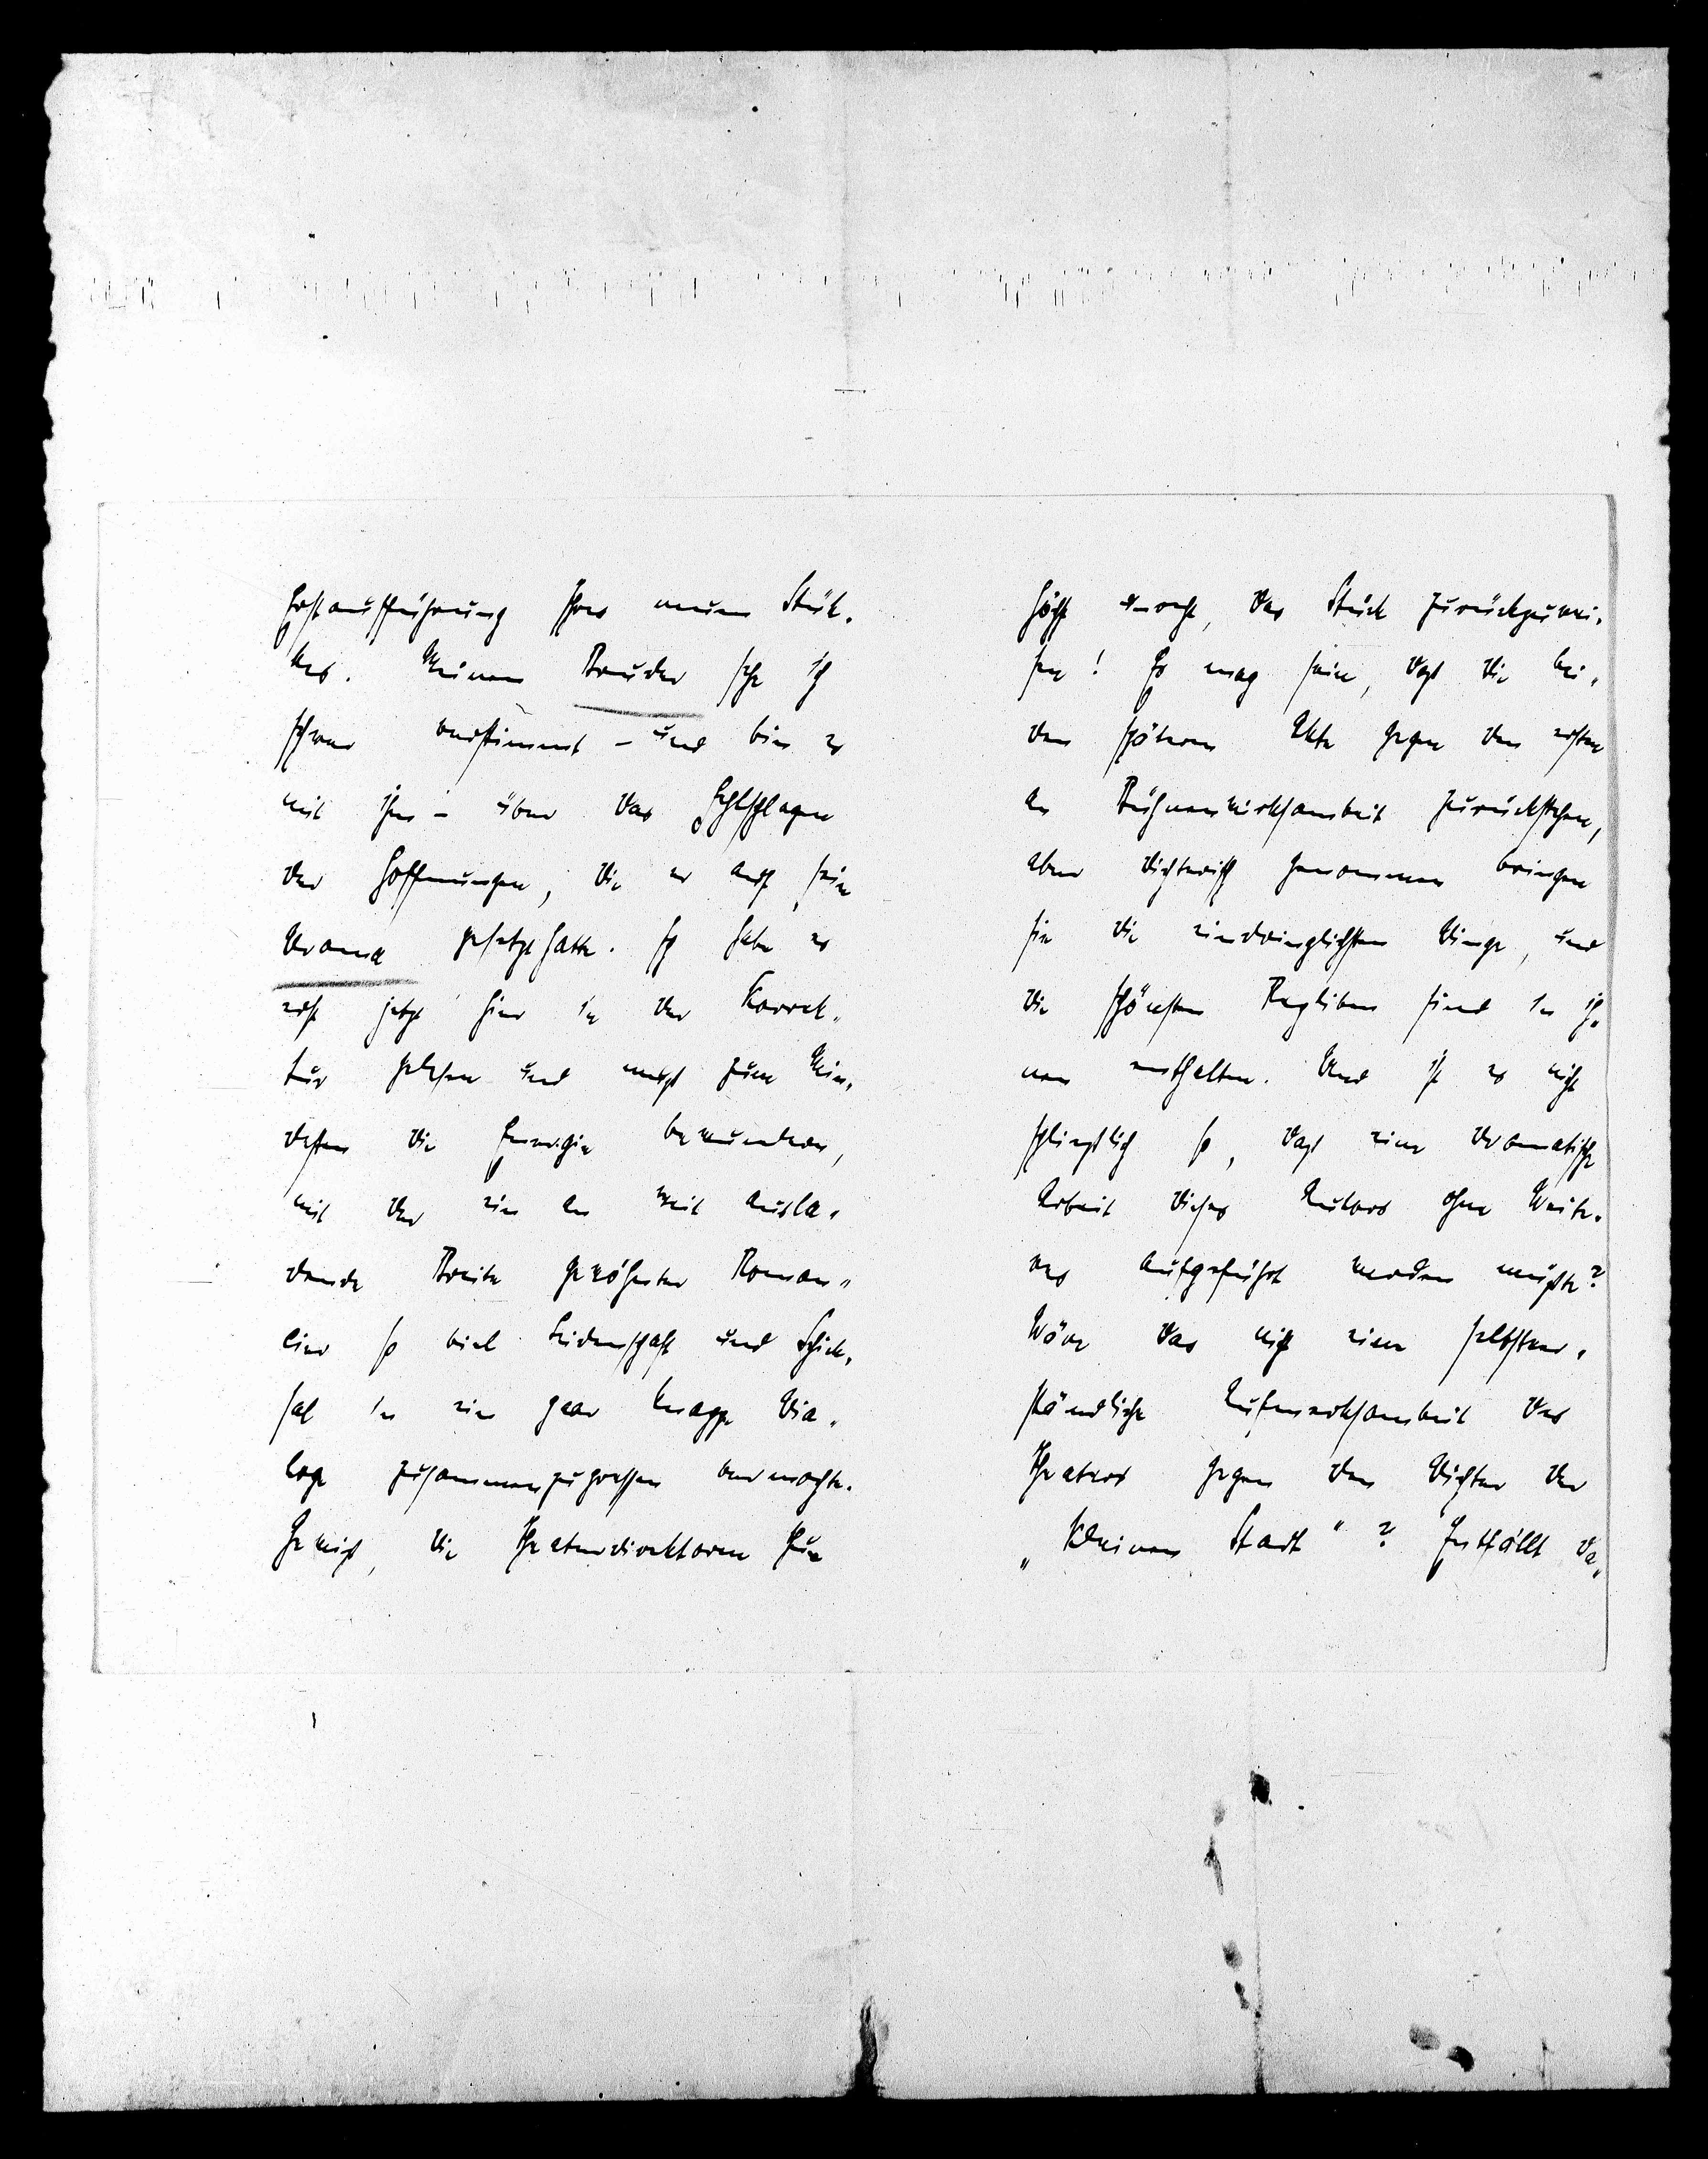 Erstaufführung Ihres neuen Stük-
kes. Meinen Bruder sehe ich
schwer verstimmt – und bin es
mit ihm – über das Fehlschlagen
der Hoffnungen, die er auf sein
Drama gesetzt hatte. Ich habe es
erst jetzt hier in der Korrek-
tur gelesen und muß zum Min-
desten die Energie bewundern,
mit der ein an weit ausla-
dende Breite gewöhnter Roman-
cier so viel Leidenschaft und Schick-
sal in ein paar knappe Dia-
loge zusammenzupressen vermochte.
Gewiß, die Theaterdirektoren thun
höchst unrecht, das Stück zurückzuwei-
sen! Es mag sein, daß die bei-
den späteren Akte gegen den ersten
an Bühnenwirksamkeit zurückstehen,
aber dichterisch genommen bringen
sie die eindringlichsten Dinge, und
die schönsten Repliken sind in ih-
nen enthalten. Und ist es nicht
schließlich so, daß eine dramatische
Arbeit dieses Autors ohne Weite-
res aufgeführt werden müßte?
Wäre das nicht eine selbstver-
ständliche Aufmerksamkeit des
Theaters gegen den Dichter der
„Kleinen Stadt"? Entfällt da-